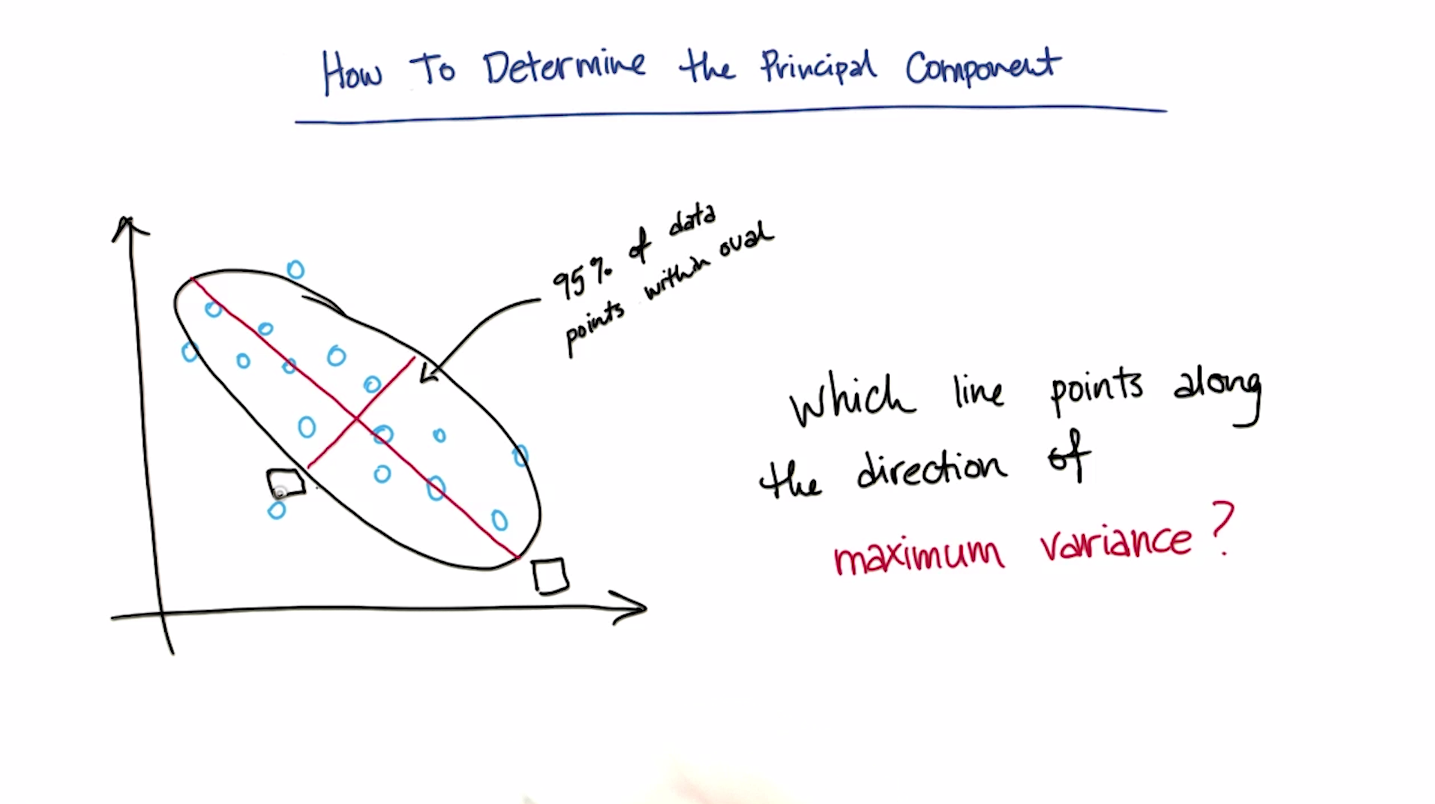 How To Determine the Principal Component
95% of data
points within oval
Which line points along
the direction of
maximum variance?